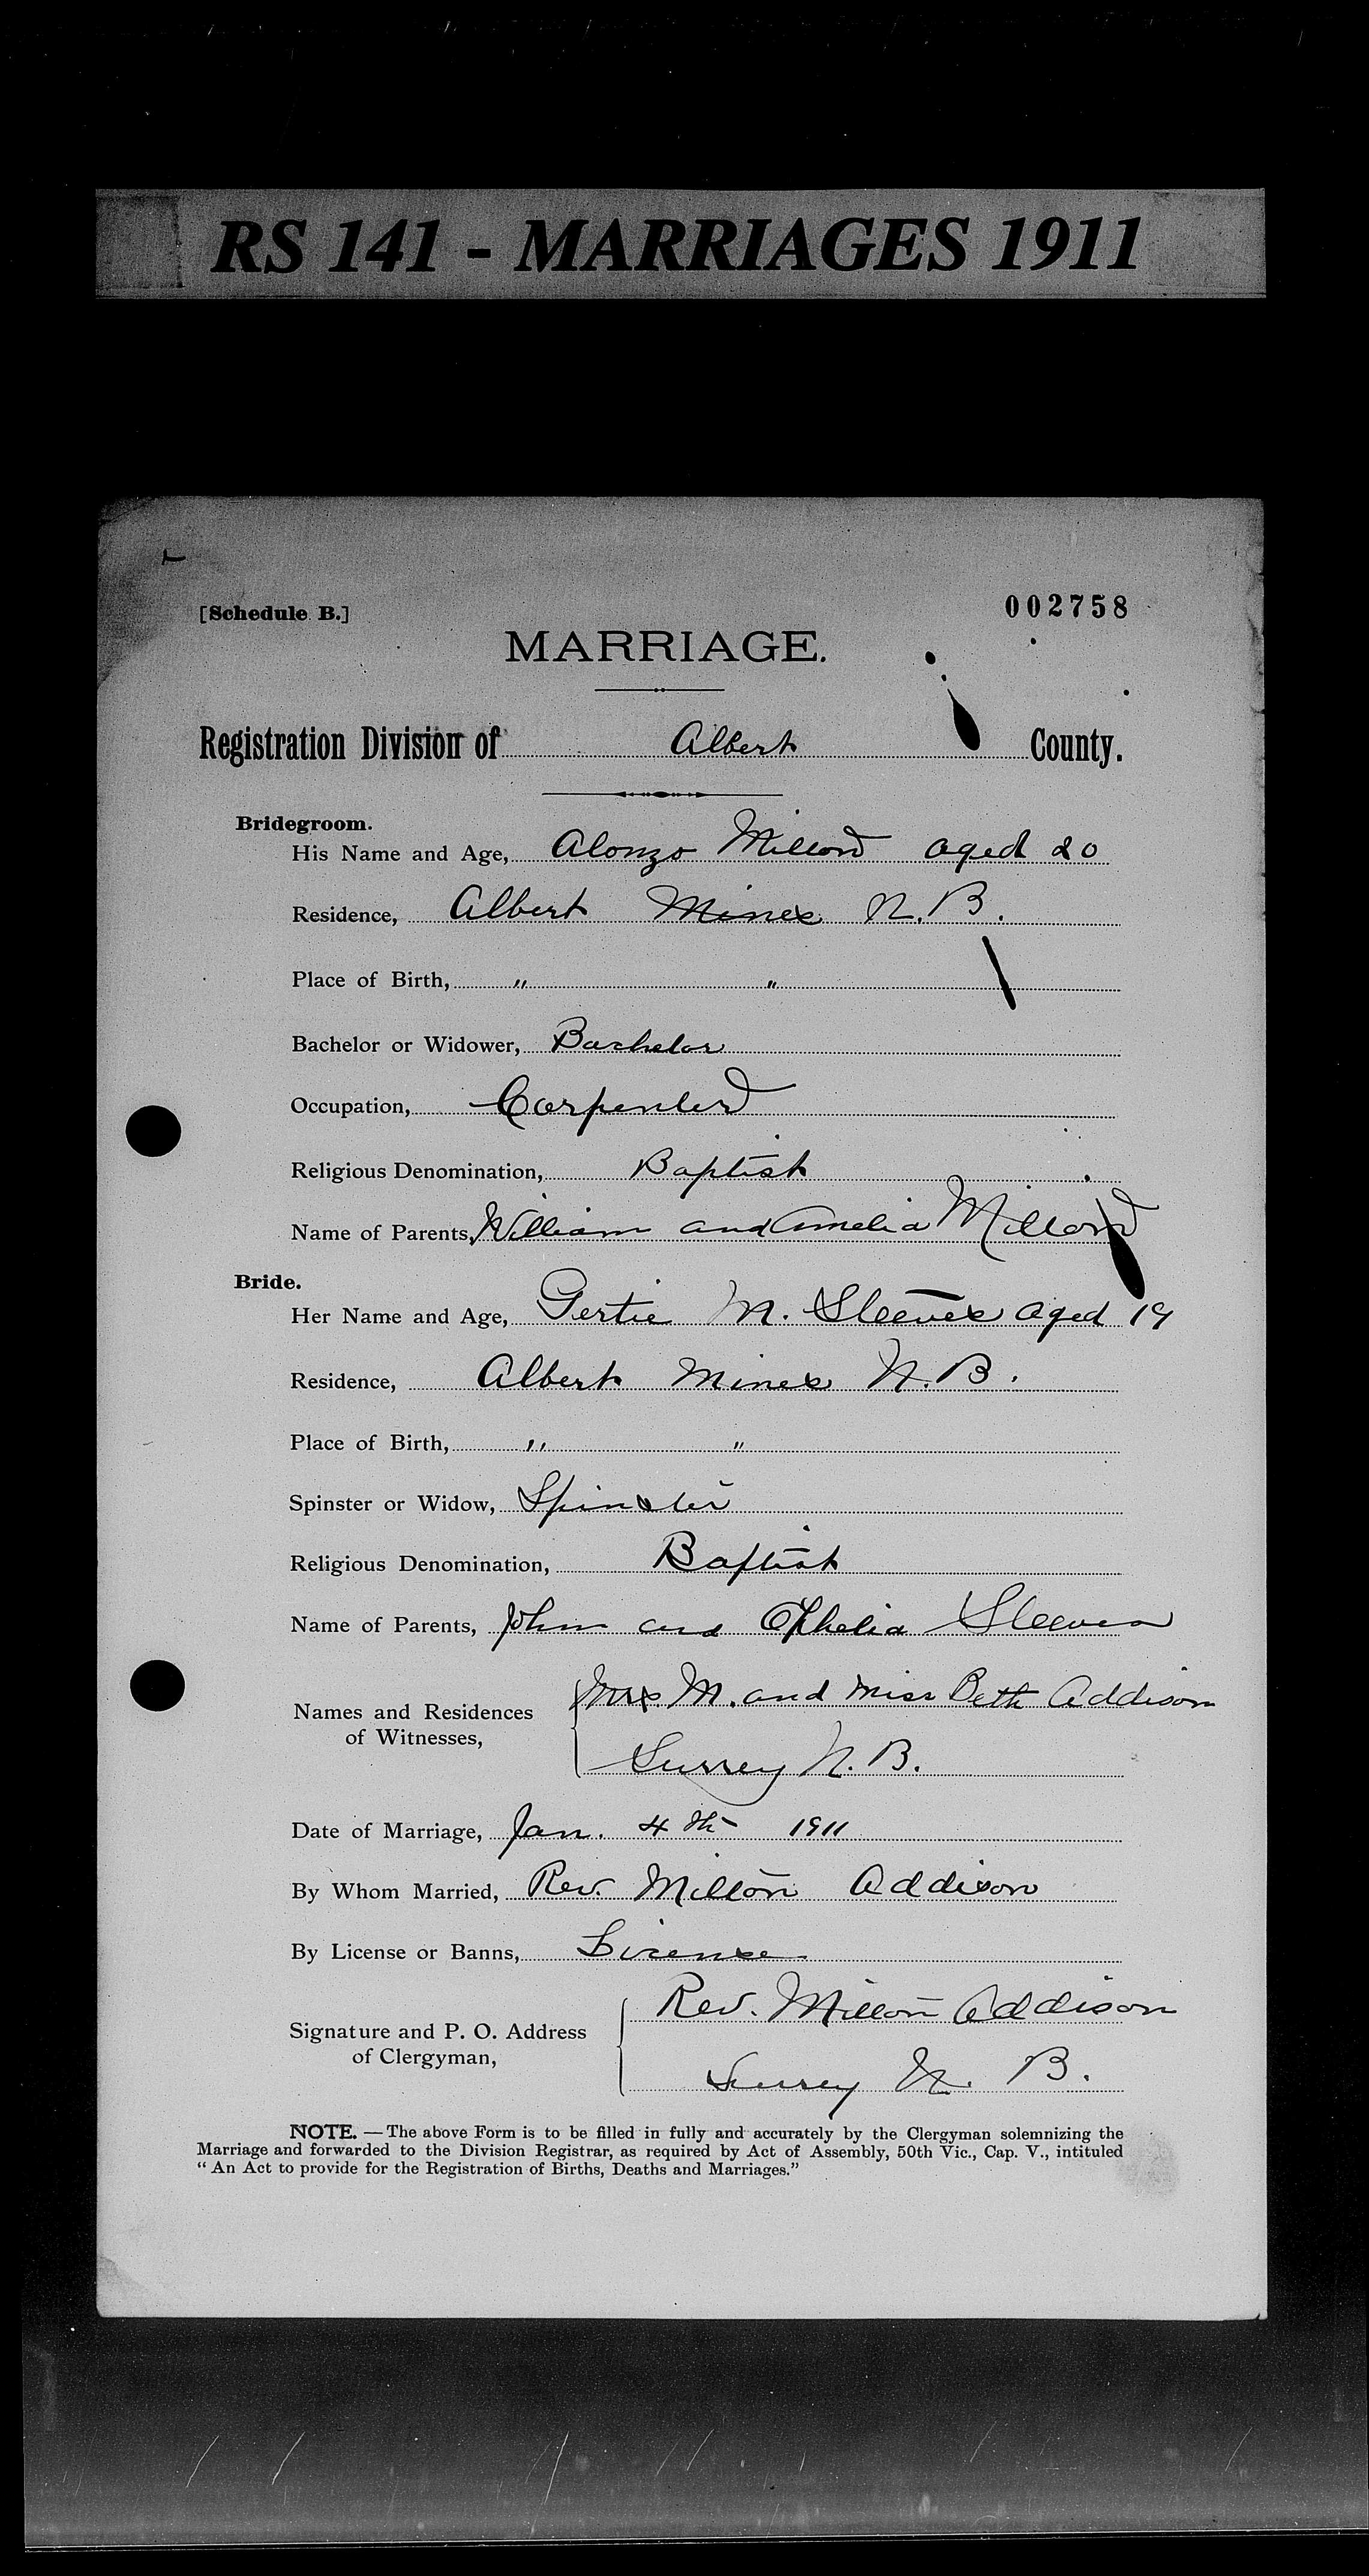 RS 141 - MARRIAGES 1911
[Schedule B.]
002758
MARRIAGE.
Registration Division of Albert County.
Bridegroom.
His Name and Age, Alonzo Milton aged 20
Residence, Albert Mines N.B.
Place of Birth, " "
Bachelor or Widower, Bachelor
Occupation, Carpenter
Religious Denomination, Baptist
Name of Parents, William and Amelia Milton
Bride.
Her Name and Age, Gertie M. Steeves aged 19
Residence, Albert Mines N.B.
Place of Birth, " "
Spinster or Widow, Spinster
Religious Denomination, Baptist
Name of Parents, John and Ophelia Steeves
Names and Residences of Witnesses, Mrs M. and Miss Beth Addison
Surrey N.B.
Date of Marriage, Jan. 4th 1911
By Whom Married, Rev. Milton Addison
By License or Banns, License
Signature and P. O. Address of Clergyman, Rev. Milton Addison
Surrey N. B.
NOTE. — The above Form is to be filled in fully and accurately by the Clergyman solemnizing the
Marriage and forwarded to the Division Registrar, as required by Act of Assembly, 50th Vic., Cap. V., intituled
" An Act to provide for the Registration of Births, Deaths and Marriages."